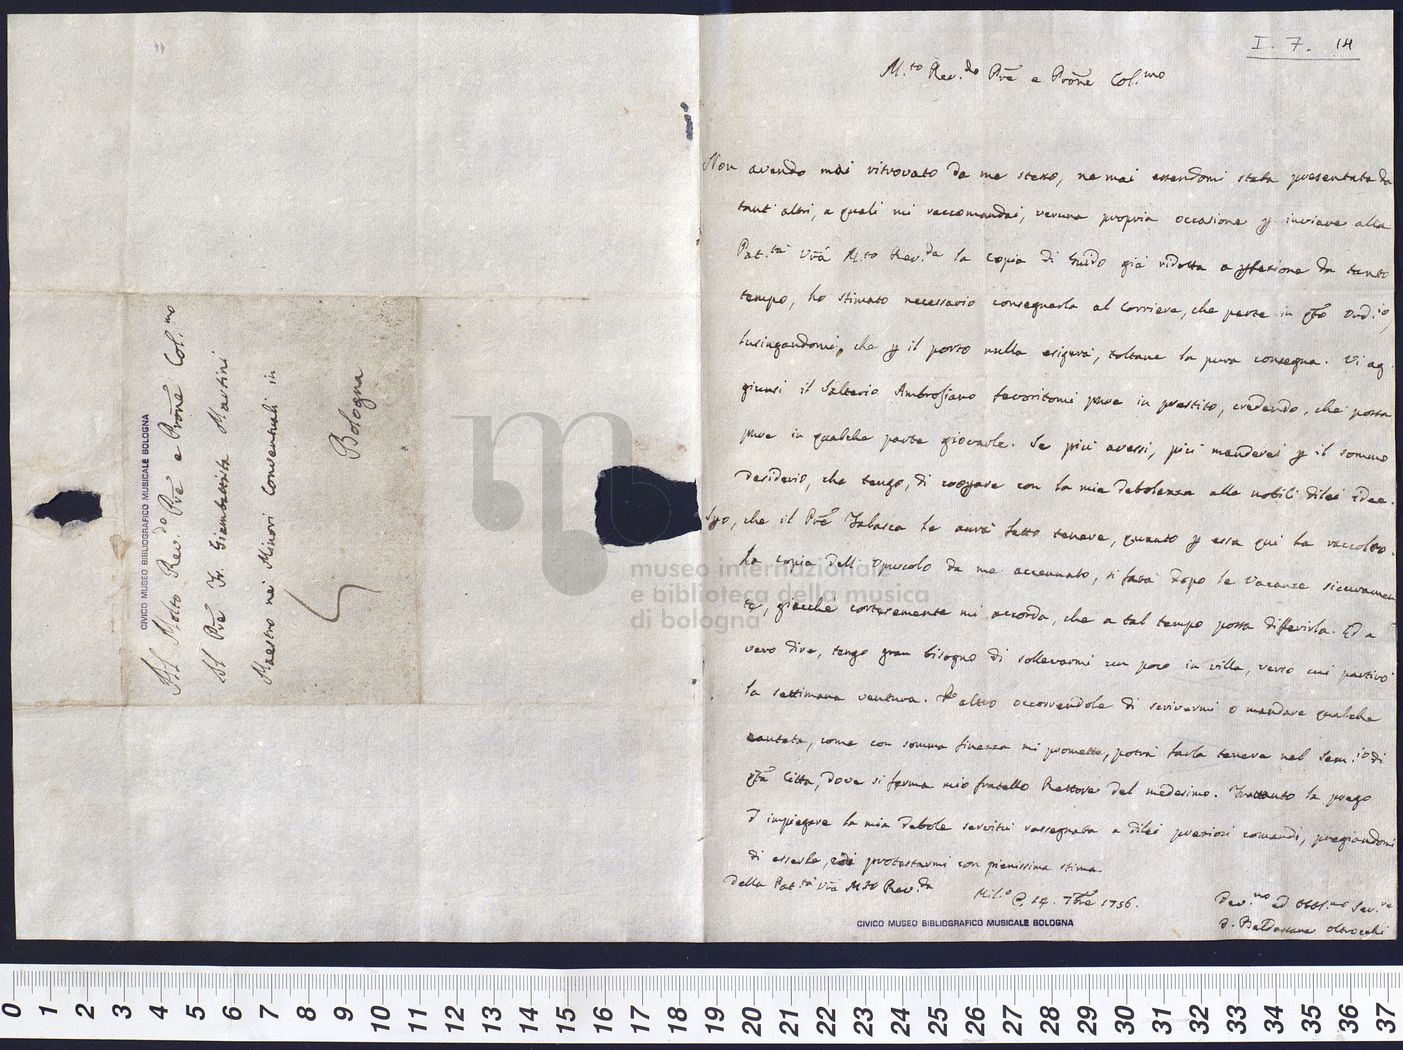 I. 7. 14
M.to Rev.do Prē e Prōne Col.mo
Non avendo mai ritrovato da me stesso, ne mai essendomi stata presentata da
tant' altri, a quali mi raccomandai, veruna propria occasione p inviare alla
Pat.tà Vrā M.to Rev.da la copia di Guido già ridotta a pfezione da tanto
tempo, ho stimato necessario consegnarla al Corriere, che parte in qto ord.io,
lusingandomi, che p il porto nulla esigerà, toltane la pura consegna. Vi ag-
giunsi il Salterio Ambrosiano favoritomi pure in prestito, credendo, che possa
pure in qualche parte giovarle. Se più avessi, più manderei p il sommo
desiderio, che tengo, di coopare con la mia debolezza alle nobili di lei idee.
Spo, che il Prē Tabasca le avrà fatto tenere, quanto p essa qui ha raccolto.
La copia dell' Opuscolo da me accennato, si farà dopo le Vacanze sicuramen-
te, giacche cortesemente mi accorda, che a tal tempo possa differirla. Ed a
vero dire, tengo gran bisogno di sollevarmi un poco in villa, verso cui partirò
la settimana ventura. P altro occorrendole di scrivermi o mandare qualche
cantata, come con somma finezza mi promette, potrà farla tenere nel Sem.io di
qta Città, dove si ferma mio fratello Rettore del medesimo. Frattanto la prego
d' impiegare la mia debole servitù rassegnata a di lei preziosi comandi, pregiandomi
di esserla, e di protestarmi con pienissima stima.
Della Pat.tà Vrā M.to Rev.da
Mil.o 14. 7bre 1756.
Dev.mo ed Obbl.mo Ser.re
D. Baldassare Oltrocchi
CIVICO MUSEO BIBLIOGRAFICO MUSICALE BOLOGNA
Al Molto Rev.do Prē e Prōne Col.mo
Al Prē Fr. Giambattista Martini
Maestro nei Minori Conventuali in
Bologna
CIVICO MUSEO BIBLIOGRAFICO MUSICALE BOLOGNA
museo internazionale
e biblioteca della musica
di bologna
0 1 2 3 4 5 6 7 8 9 10 11 12 13 14 15 16 17 18 19 20 21 22 23 24 25 26 27 28 29 30 31 32 33 34 35 36 37